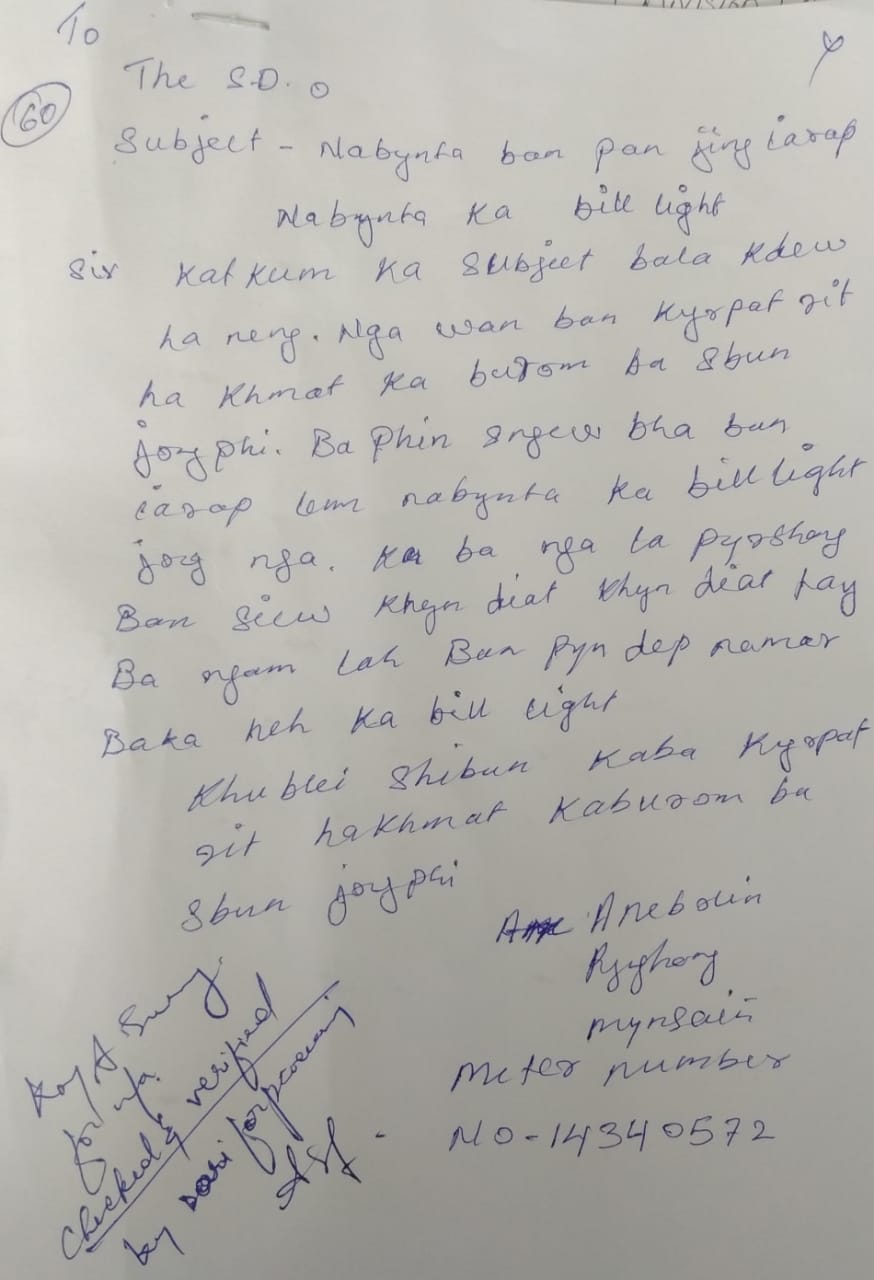 To
The S.D.O
60
Subject - Nabynta ban pan jing iarap
Nabynta Ka bill light
Sir Kat kum Ka Subject bala Kdew
ha neng. Nga wan ban Kyrpat rit
ha Khmat Ka burom ba Sbun
jong phi. Ba Phin sngew bha ban
iarap lem nabynta Ka bill light
jong nga. Ka ba nga la pyrshang
Ban siew Khyn diat Khyn diat hay
Ba ngam lah Ban pyn dep namar
Baka heh Ka bill light
Khublei Shibun Kaba Kyrpat
rit hakhmat Kaburom ba
Sbun jong phi
Anebolin
mynsain
Meter number
NO-14340572
for n/a.
Checked & verified
by